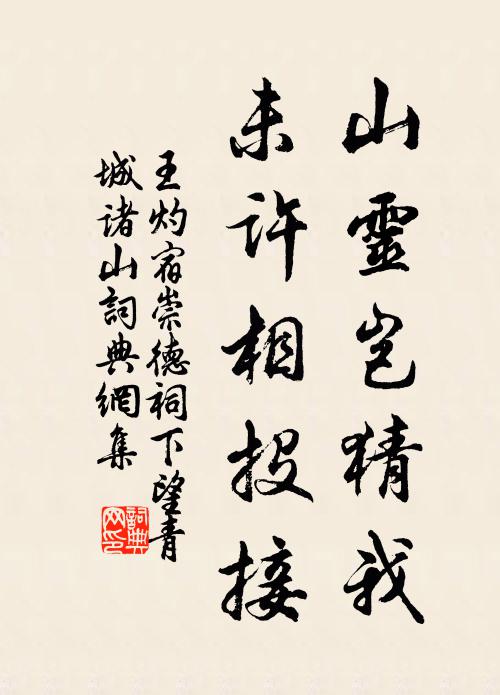 山靈豈猜我
未許相投接
王灼宿崇德祠下望青
城诸山詞典網集
詞典
网印